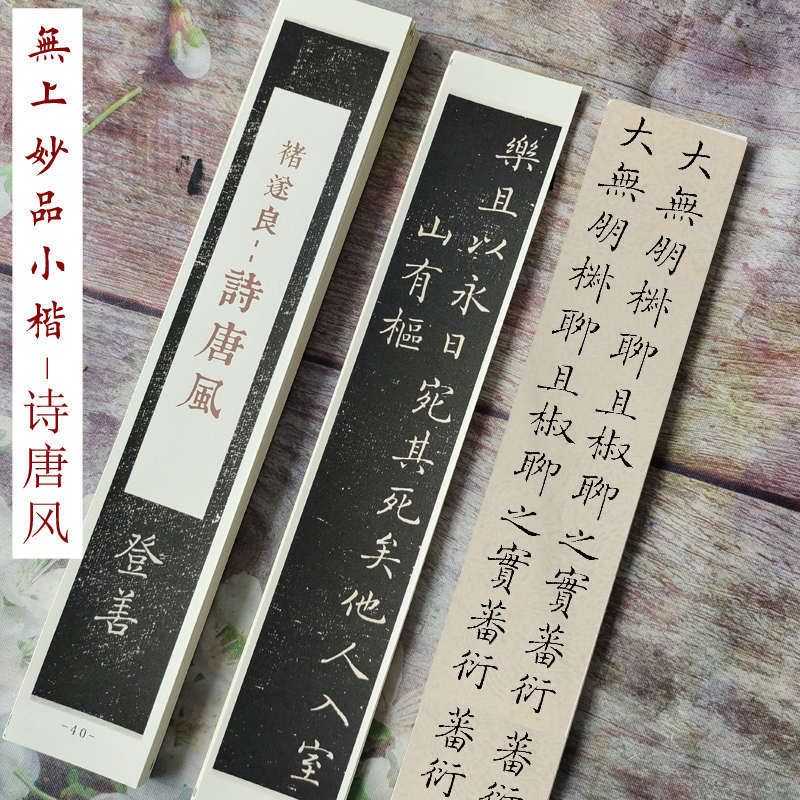 無上妙品小楷-诗唐风
褚遂良--詩唐風
登善
-40-
樂且以永日宛其死矣他人入室
山有樞
大無朋椒聊且椒聊之實蕃衍蕃衍
大無朋椒聊且椒聊之實蕃衍蕃衍